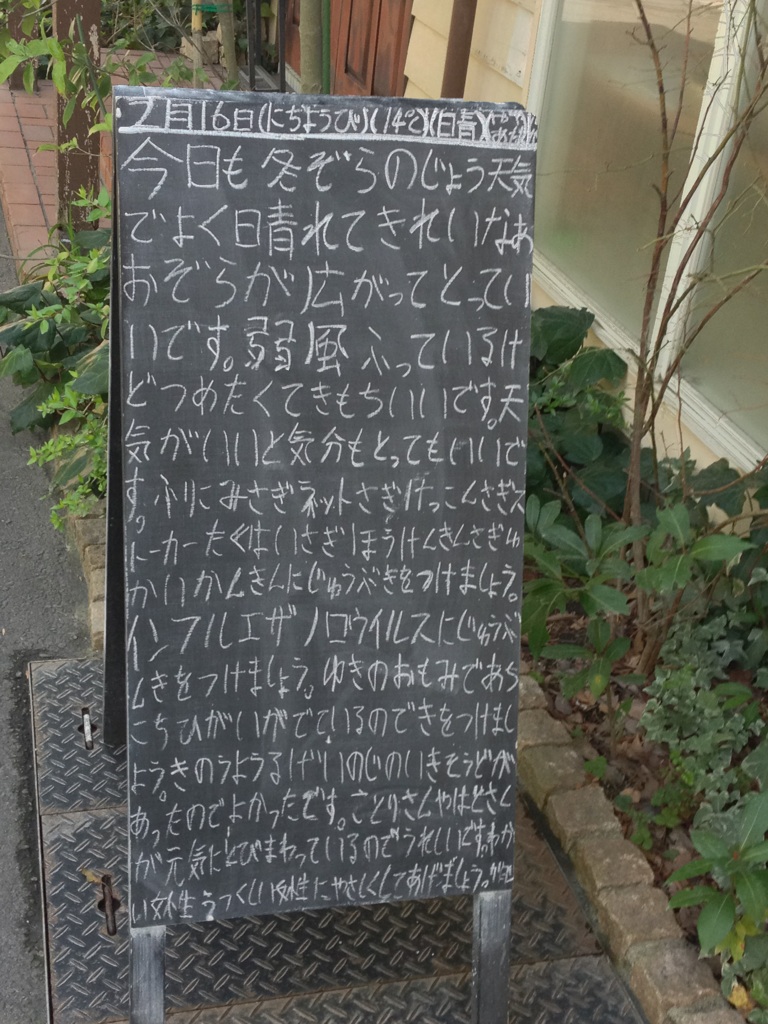 2月16日(にちようび)(14℃)(日青)
今日も冬ぞらのじょう天気
でよく日青れてきれいなあ
おぞらが広がってとってい
いです。弱風ふっているけ
どつめたくてきもちいいです。天
気がいいと気分もとってもいいで
す。ふりこみさぎネットさぎけっこんさぎス
トーカーたくはいさぎほうけんきんさぎゅ
かいかんきんにじゅうぶきをつけましょう。
インフルエザノロウイルスにじゅうぶ
んきをつけましょう。ゆきのおもみであち
こちひがいがでているのできをつけまし
ょう。きのうようるげいのじのいきそうどが
あったのでよかったです。ことりさんやはとさん
が元気にとびまわっているのでうれしいです。わか
い女性うつくしい女性にやさしくしてあげましょう。